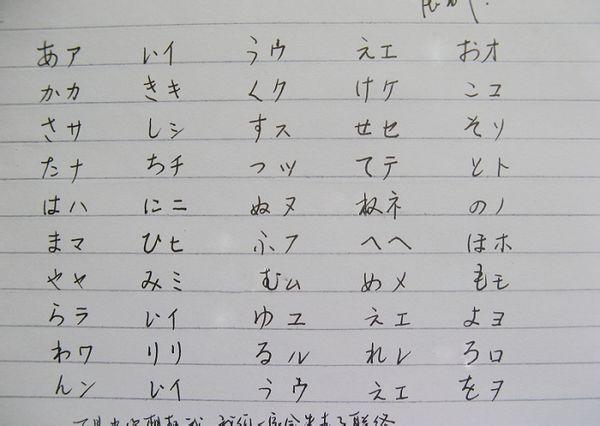 あア いイ うウ えエ おオ
かカ きキ くク けケ こコ
さサ しシ すス せセ そソ
たナ ちチ つツ てテ とト
はハ にニ ぬヌ ねネ のノ
まマ ひヒ ふフ へヘ ほホ
やヤ みミ むム めメ もモ
らラ いイ ゆユ えエ よヨ
わワ りリ るル れレ ろロ
んン いイ うウ えエ をヲ